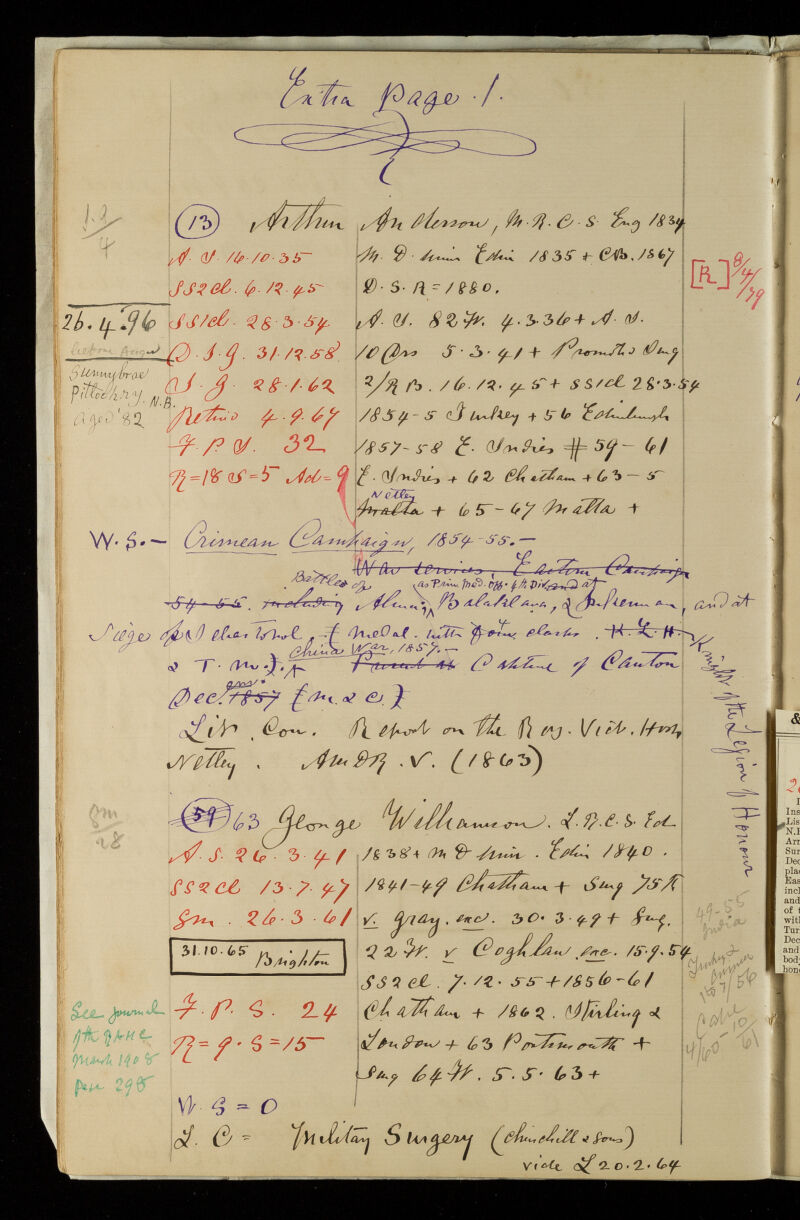 Extra Page. 1.
1.2/4
(13) Arthur Anderson, M.R.C.S. Eng 1834
A.S. 16.10.35 M.D. Univ Edin 1835 + CB. 1867
[R] 8/4/79
SS2cl. 6.12.45 D.S.R = 1880.
26.4.96
SS1cl. 28.3.54 A.S. 82 Ft. 4.3.36 + A.S.
D.I.G. 31.12.58 10 Drs 5.3.41 + Promoted Surg
Sunnybrae
Pitlochry. N.B.
Aged 82
I.G. 28.1.62 2/R B. 16.12.45 + SS1cl 28.3.54
Retired 4.9.67 1854-5 Turkey + 56 Edinburgh
F.P.S. 32 1857-58 E. Indies # 59-61
R=18 S=5 Ad=9 E. Indies + 62 Chatham + 63-5
Netley
Malta + 65-67 Malta +
W.S.— Crimean Campaign, 1854-55.—
War services. Eastern Campaign
Battles of as Prin. Med. Off. 4th Div. and at
54-55. including Alma, Balaklava, & Inkerman, and at
Siege of Sebastopol. (Medal with four clasps. K.L.H. Knight of the Legion of Honour
China War, 1857.—
& T.M.). Present at Capture of Canton
Dec. 1857 (M. & C.)
Lit. Con. Report on the Roy. Vict. Hosp
Netley. AMDR. V. (1863)
(59) 63 George Williamson. L.R.C.S. Ed
8m/28
A.S. 26.3.41 1838 + MD Univ. Edin 1840.
SS2cl 13.7.47 1841-49 Chatham + Surg 75 Ft
Sm. 26.3.61 v. Gray. exc. 30.3.49 + Surg.
49-55
India
31.10.65 Brighton
22 Ft. v Coghlan exc. 15.9.54
SS2cl. 7.12.55 + 1856-61
Turkey &
Crimea
F.P.S. 24 Chatham + 1862. Stirling &
Cape
4/60 - 10/61
See Journal
of the RAMC
March 1908
Page 298
R=9. S=15 London + 63 Portsmouth +
Surg 64 Ft. 5.5.63 +
W.S = 0
L.C = Military Surgery (Churchill & Sons)
vide L 20.2.64
&